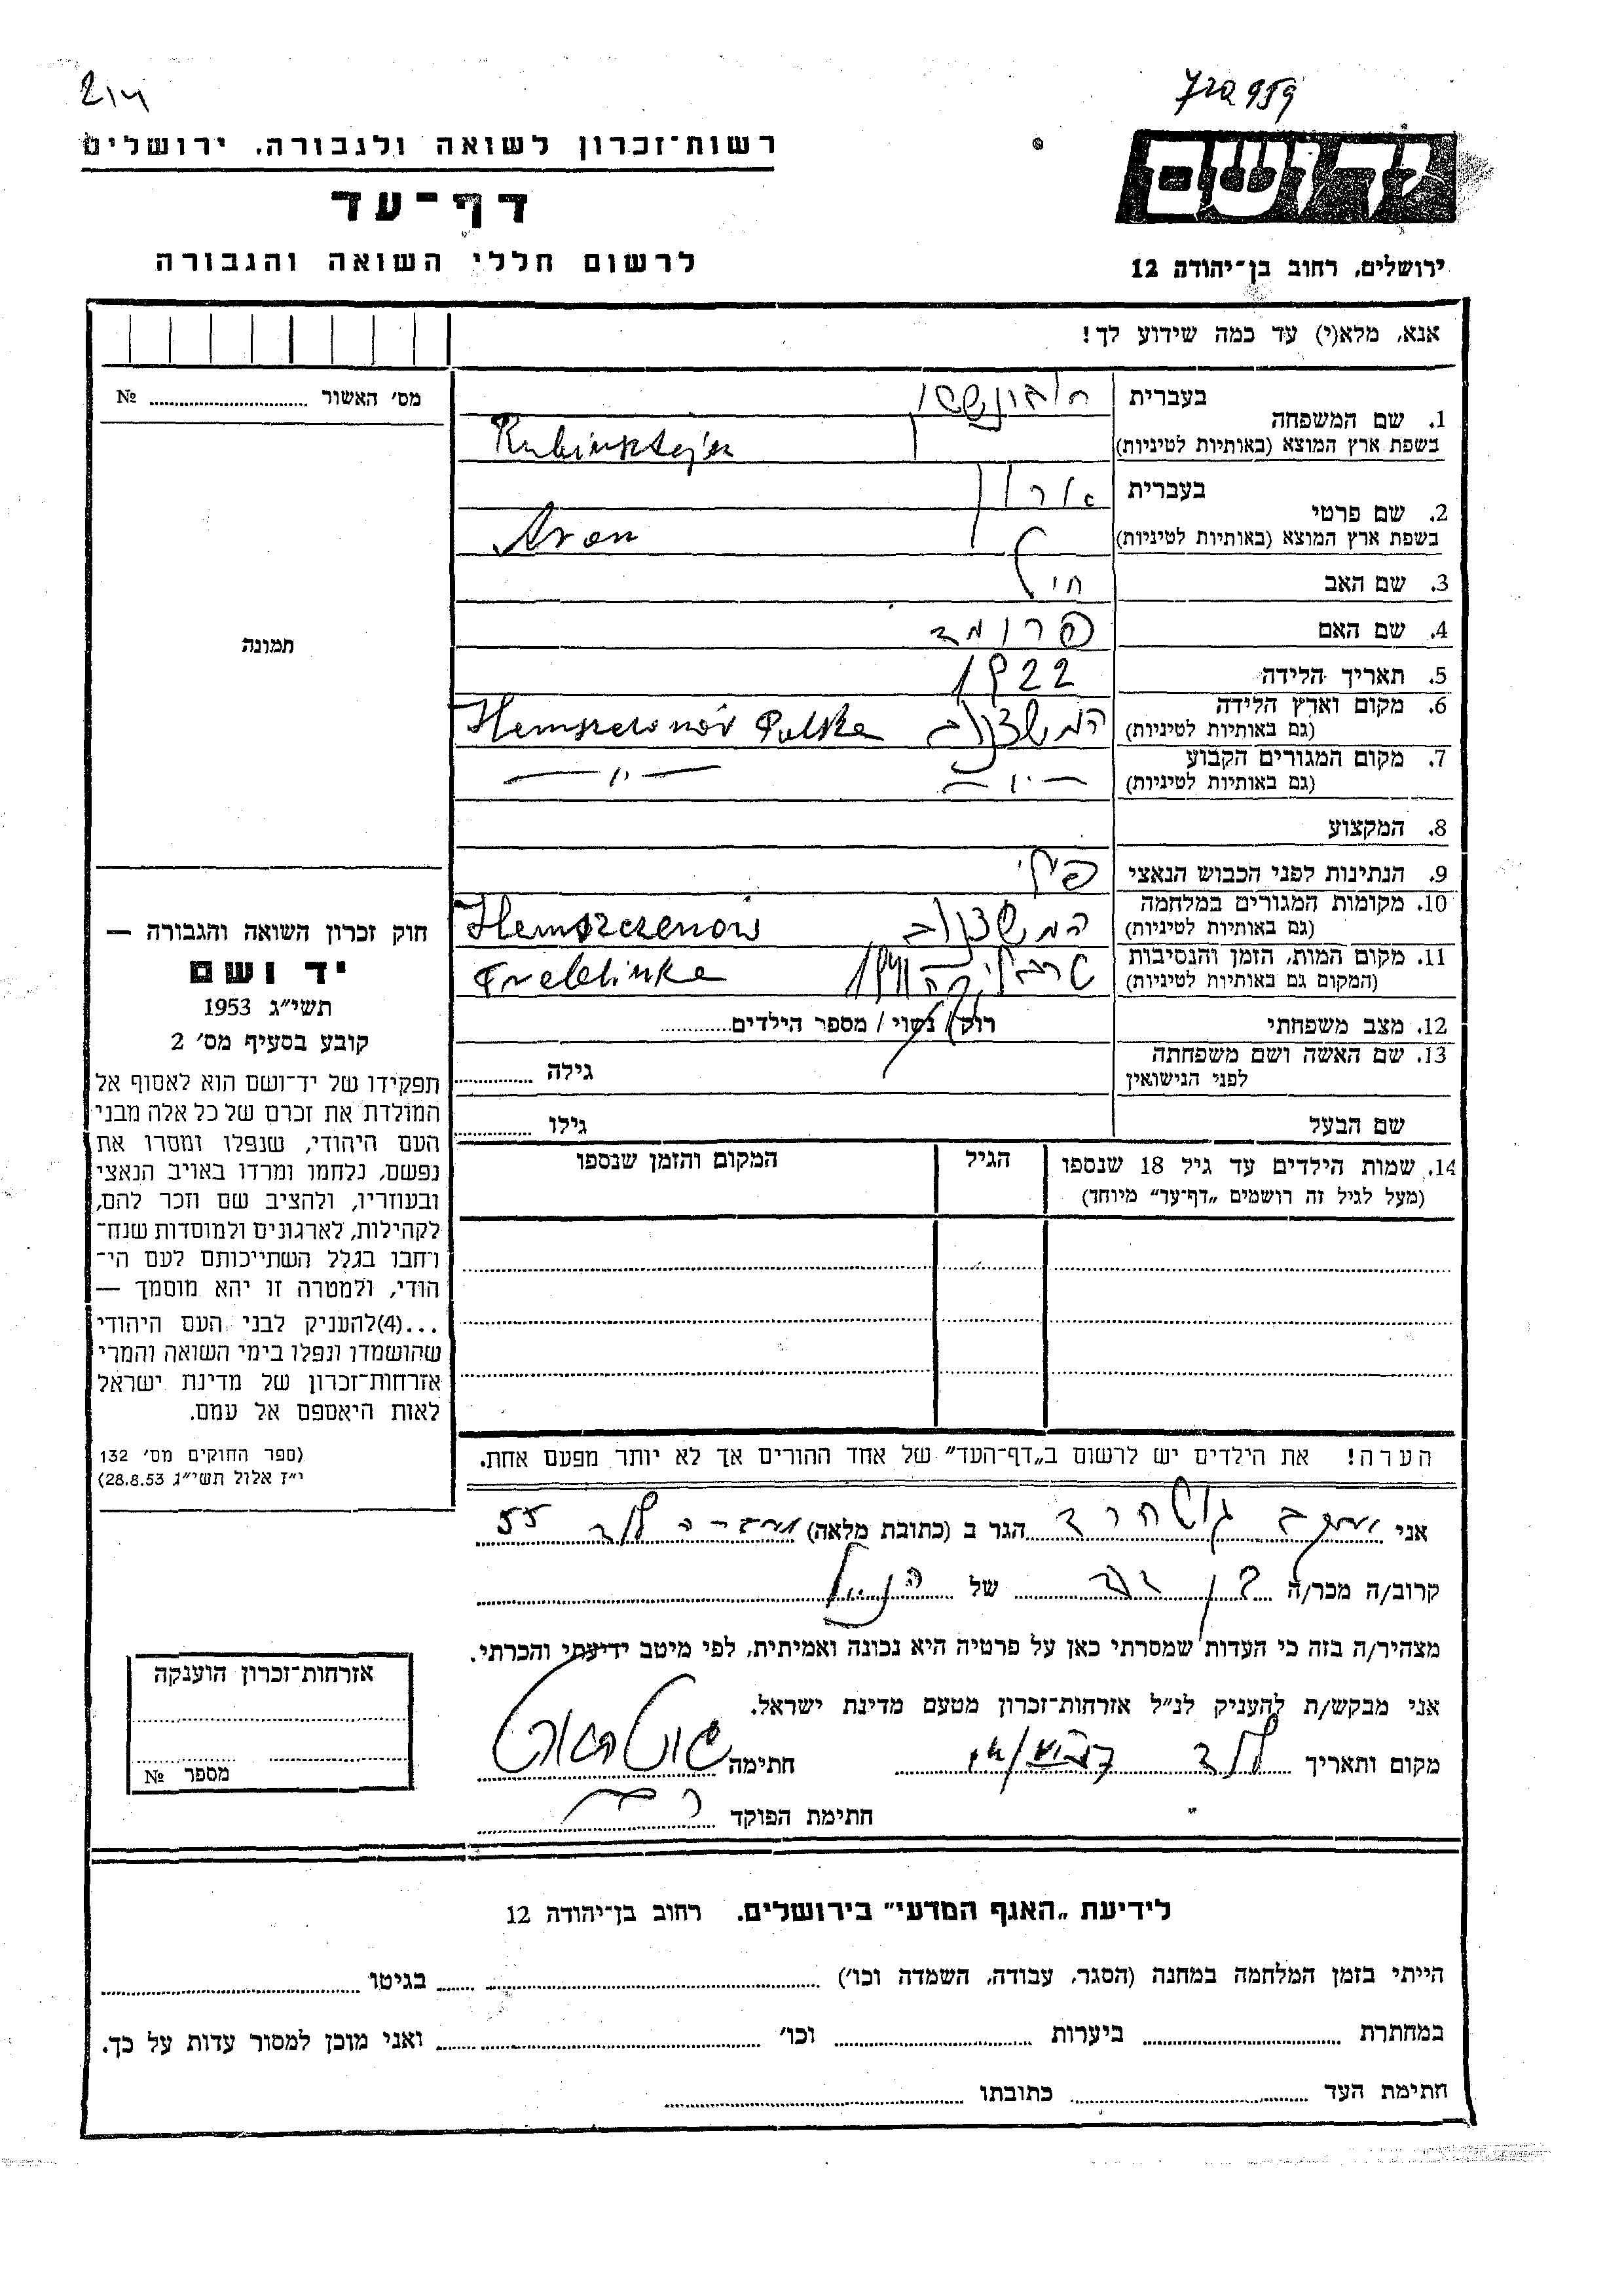 רשות־זכרון לשואה ולגבורה, ירושלים
דף־עד
לרשום חללי השואה והגבורה
יד ושם
ירושלים, רחוב בן־יהודה 12
אנא, מלא(י) עד כמה שידוע לך!
מס׳ האשור № 
תמונה
1. שם המשפחה
בעברית
בשפת ארץ המוצא (באותיות לטיניות) Rubinsztejn
2. שם פרטי
בעברית ארון
בשפת ארץ המוצא (באותיות לטיניות) Aron
3. שם האב
4. שם האם
5. תאריך הלידה 1922
6. מקום וארץ הלידה
(גם באותיות לטיניות) Polska
7. מקום המגורים הקבוע
(גם באותיות לטיניות) — " — — " —
8. המקצוע
9. הנתינות לפני הכבוש הנאצי
10. מקומות המגורים במלחמה
(גם באותיות לטיניות)
11. מקום המות, הזמן והנסיבות
(המקום גם באותיות לטיניות) Treblinka
12. מצב משפחתי רוק / נשוי / מספר הילדים
13. שם האשה ושם משפחתה
לפני הנישואין
גילה
שם הבעל גילו
14. שמות הילדים עד גיל 18 שנספו
(מעל לגיל זה רושמים „דף־עד” מיוחד)
הגיל
המקום והזמן שנספו
הערה! את הילדים יש לרשום ב„דף־העד” של אחד ההורים אך לא יותר מפעם אחת.
חוק זכרון השואה והגבורה —
יד ושם
תשי״ג 1953
קובע בסעיף מס׳ 2
תפקידו של יד־ושם הוא לאסוף אל
המולדת את זכרם של כל אלה מבני
העם היהודי, שנפלו ומסרו את
נפשם, נלחמו ומרדו באויב הנאצי
ובעוזריו, ולהציב שם וזכר להם,
לקהילות, לארגונים ולמוסדות שנח־
רחבו בגלל השתייכותם לעם הי־
הודי, ולמטרה זו יהא מוסמך —
...(4)להעניק לבני העם היהודי
שהושמדו ונפלו בימי השואה והמרי
אזרחות־זכרון של מדינת ישראל
לאות היאספם אל עמם.
(ספר החוקים מס׳ 132
י״ז אלול תשי״ג 28.8.53)
אני הגר ב (כתובת מלאה)
קרוב/ה מכר/ה של
מצהיר/ה בזה כי העדות שמסרתי כאן על פרטיה היא נכונה ואמיתית, לפי מיטב ידיעתי והכרתי.
אני מבקש/ת להעניק לנ״ל אזרחות־זכרון מטעם מדינת ישראל.
מקום ותאריך חתימה
חתימת הפוקד
אזרחות־זכרון הוענקה
מספר №
לידיעת „האגף המדעי” בירושלים, רחוב בן־יהודה 12
הייתי בזמן המלחמה במחנה (הסגר, עבודה, השמדה וכו׳) בגיטו
במחתרת ביערות וכו׳ ואני מוכן למסור עדות על כך.
חתימת העד כתובתו